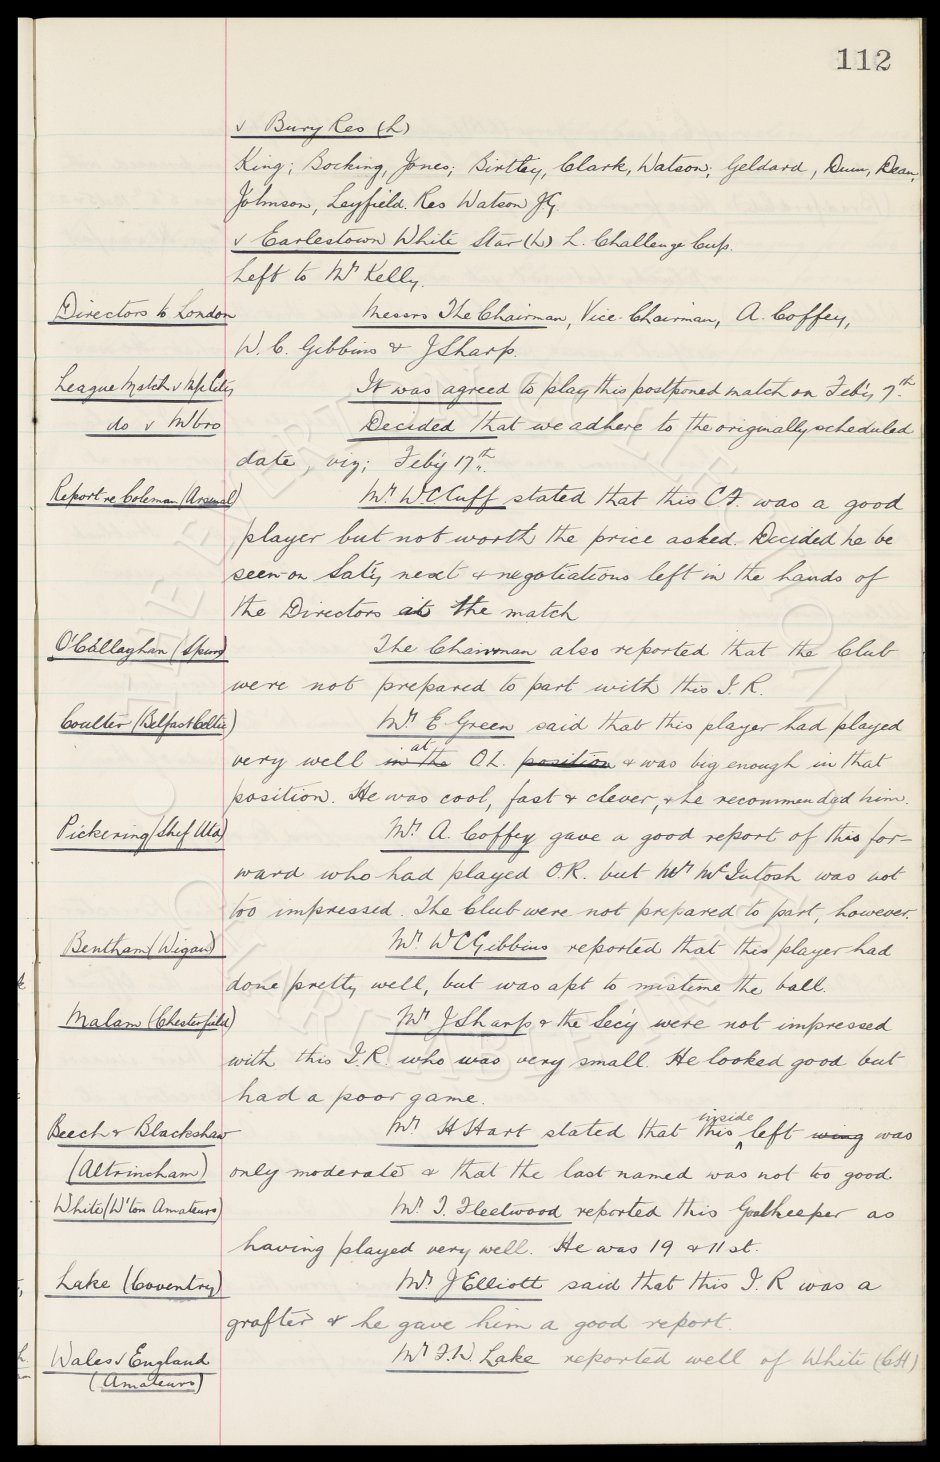 112
v Bury Res (L)
King; Bocking, Jones; Birtley, Clark, Watson; Geldard, Dunn, Dean,
Johnson, Leyfield. Res Watson J.G.
v Earlestown White Star (L) L. Challenge Cup.
Left to Mr Kelly.
Directors to London Messrs The Chairman, Vice-Chairman, A. Coffey,
W. C. Gibbins & J Sharp.
League Match v M/c City It was agreed to play this postponed match on Feb'y 7th.
do v M'bro Decided that we adhere to the originally scheduled
date, viz; Feb'y 17th.
Report re Coleman (Arsenal) Mr W C Cuff stated that this C.F. was a good
player but not worth the price asked. Decided he be
seen on Sat'y next & negotiations left in the hands of
the Directors at the match
O'Callaghan (Spurs) The Chairman also reported that the Club
were not prepared to part with this I.R.
Coulter (Belfast Celtic) Mr E. Green said that this player had played
very well in the at O.L. position & was big enough in that
position. He was cool, fast & clever, & he recommended him.
Pickering (Shef Utd) Mr A. Coffey gave a good report of this for-
ward who had played O.R. but Mr McIntosh was not
too impressed. The Club were not prepared to part, however.
Bentham (Wigan) Mr W C Gibbins reported that this player had
done pretty well, but was apt to mistime the ball.
Malam (Chesterfield) Mr J Sharp & the Sec'y were not impressed
with this I.R. who was very small. He looked good but
had a poor game.
Beech & Blackshaw Mr H Hart stated that this inside left wing was
(Altrincham) only moderate & that the last named was not too good.
White (W'ton Amateurs) Mr T. Fleetwood reported this Goalkeeper as
having played very well. He was 19 & 11 st.
Lake (Coventry) Mr J Elliott said that this I.R was a
grafter & he gave him a good report.
Wales v England Mr F.W. Lake reported well of White (CH)
(Amateurs)